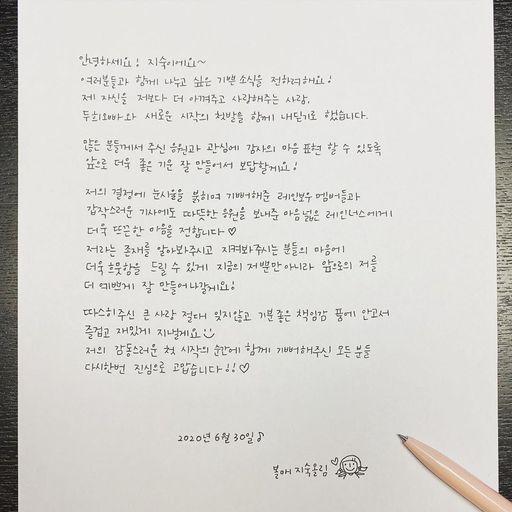 안녕하세요! 지숙이에요~
여러분들과 함께 나누고 싶은 기쁜 소식을 전하려해요!
제 자신을 저보다 더 아껴주고 사랑해주는 사람,
두희오빠와 새로운 시작의 첫발을 함께 내딛기로 했습니다.
많은 분들께서 주신 응원과 관심에 감사의 마음 표현 할 수 있도록
앞으로 더욱 좋은 기운 잘 만들어서 보답할게요!
저의 결정에 눈시울을 붉히며 기뻐해준 레인보우 멤버들과
갑작스러운 기사에도 따뜻한 응원을 보내준 마음 넓은 레인너스에게
더욱 뜨끈한 마음을 전합니다♡
저라는 존재를 알아봐주시고 지켜봐주시는 분들의 마음에
더욱 흐뭇함을 드릴 수 있게 지금의 저뿐만아니라 앞으로의 저를
더 예쁘게 잘 만들어나갈게요!
따스히주신 큰 사랑 절대 잊지않고 기분좋은 책임감 품에 안고서
즐겁고 재밌게 지낼게요
저의 감동스러운 첫 시작의 순간에 함께 기뻐해주신 모든 분들
다시한번 진심으로 고맙습니다!!♡
2020년 6월 30일♪
볼매 지숙올림